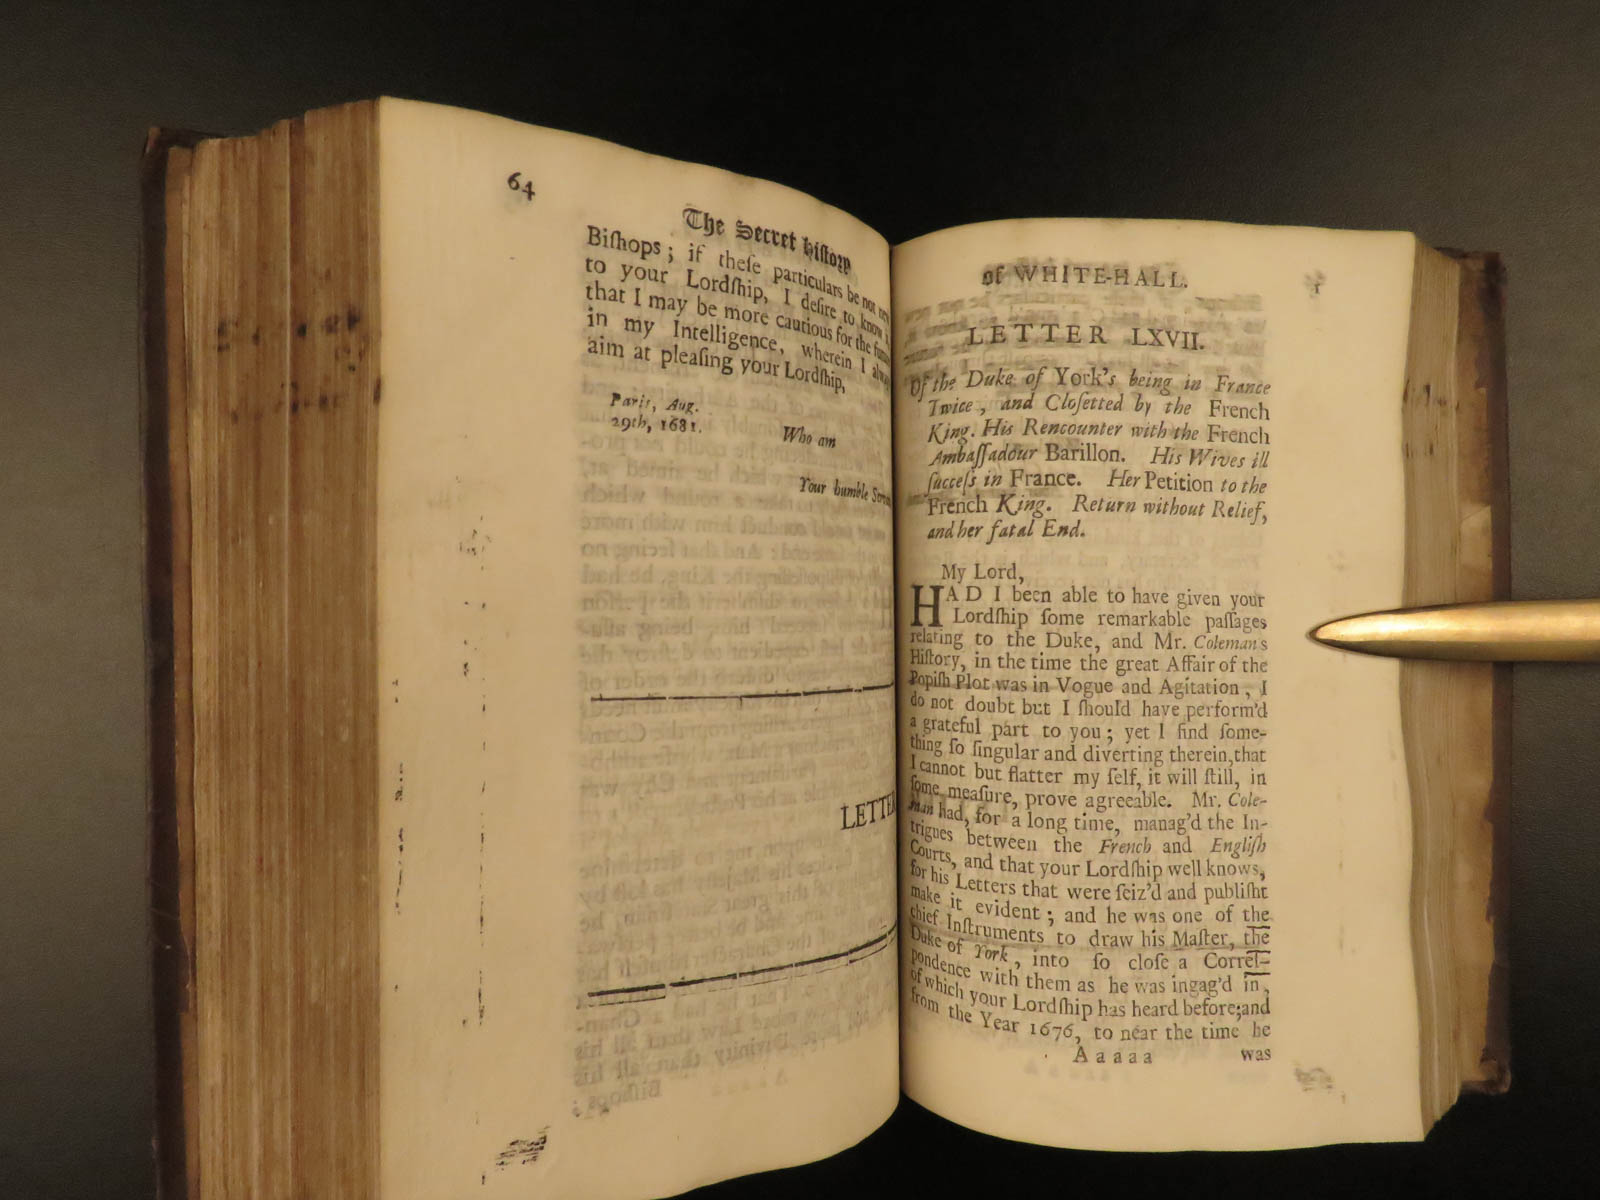 64
The Secret History
Biſhops; if theſe particulars be not
to your Lordſhip, I deſire to know
that I may be more cautious for the
in my Intelligence, wherein I
aim at pleaſing your Lordſhip,
Paris, Aug.
29th, 1681.
Who am
Your humble
LETTE
of WHITE-HALL.
LETTER LXVII.
Of the Duke of York's being in France
Twice, and Cloſetted by the French
King. His Rencounter with the French
Ambaſſadour Barillon. His Wives ill
ſucceſs in France. Her Petition to the
French King. Return without Relief,
and her fatal End.
My Lord,
HAD I been able to have given your
Lordſhip ſome remarkable paſſages
relating to the Duke, and Mr. Coleman's
Hiſtory, in the time the great Affair of the
Popiſh Plot was in Vogue and Agitation, I
do not doubt but I ſhould have perform'd
a grateful part to you; yet I find ſome-
thing ſo ſingular and diverting therein,that
I cannot but flatter my ſelf, it will ſtill, in
ſome meaſure, prove agreeable. Mr. Cole-
man had, for a long time, manag'd the In-
trigues between the French and Engliſh
Courts, and that your Lordſhip well knows,
for his Letters that were ſeiz'd and publiſht
make it evident; and he was one of the
chief Inſtruments to draw his Maſter, the
Duke of York, into ſo cloſe a Correſ-
pondence with them as he was ingag'd in,
of which your Lordſhip has heard before;and
from the Year 1676, to near the time he
Aaaaa was